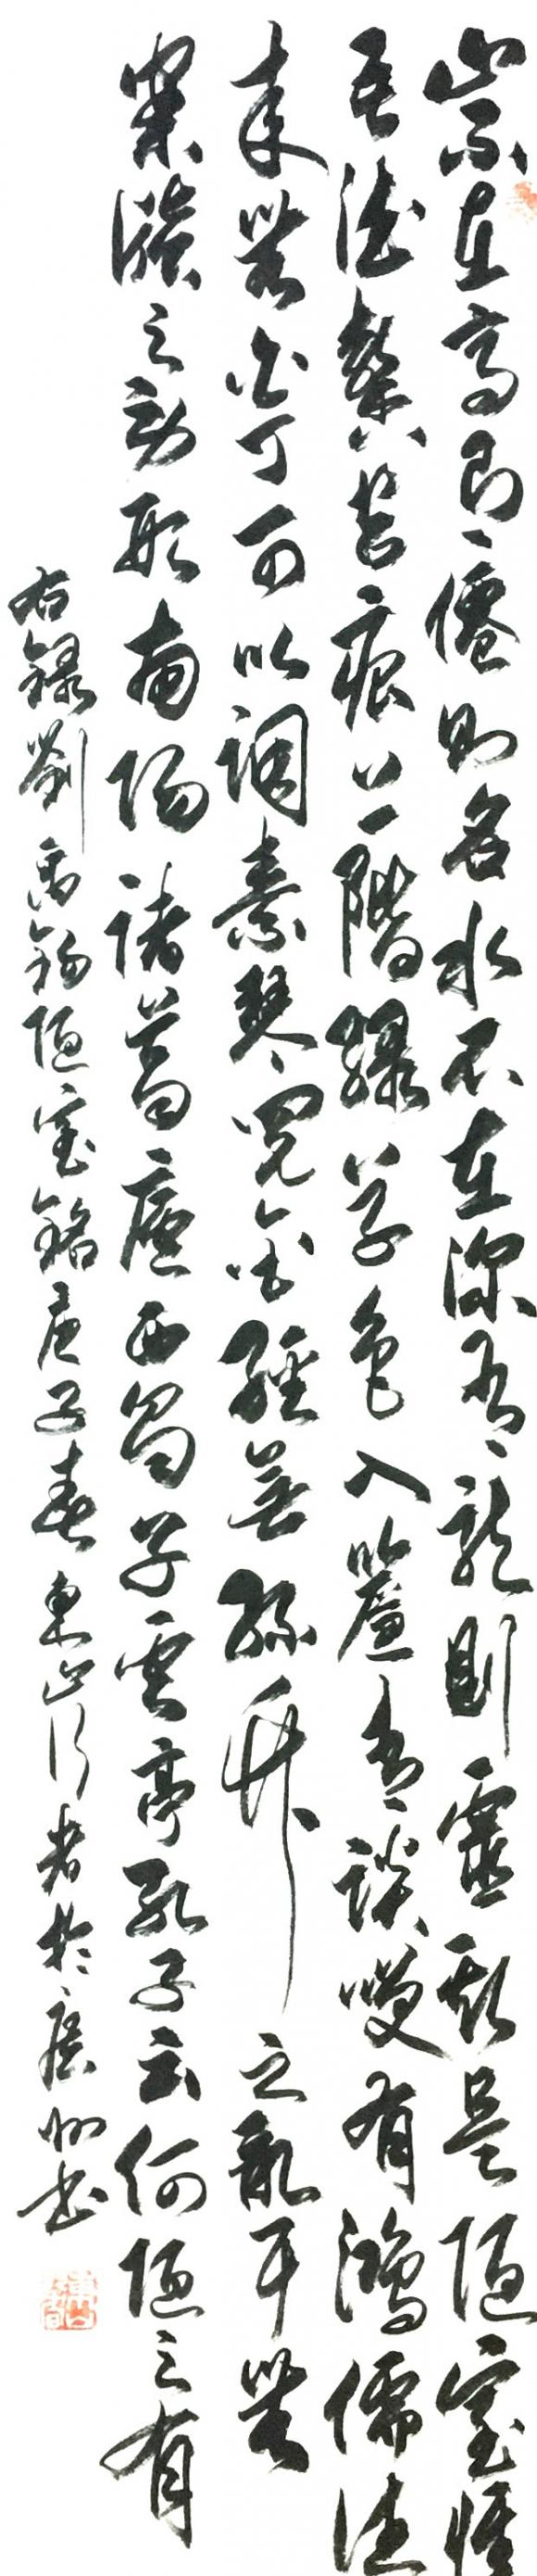 山不在高有僊則名水不在深有龍則靈斯是陋室惟
吾德馨苔痕上階綠草色入簾青談咲有鴻儒往
來無白丁可以調素琴閱金經無絲竹之亂耳無
案牘之勞形南陽諸葛廬西蜀子雲亭孔子云何陋之有
右錄劉禹錫陋室銘庚子春東山行者於廣州書